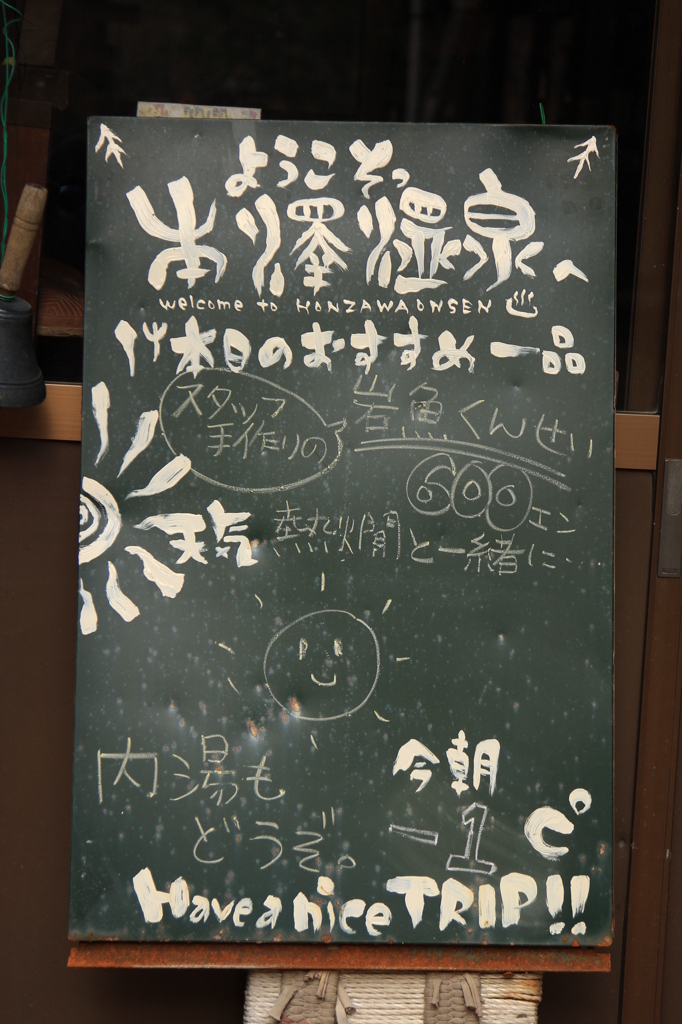 ようこそ。
本澤温泉へ
welcome to HONZAWA ONSEN ♨
本日のおすすめ一品
スタッフ
手作りの
岩魚くんせい
600エン
天気
熱燗と一緒に…
内湯も
どうぞ。
今朝
-1℃
Have a nice TRIP!!